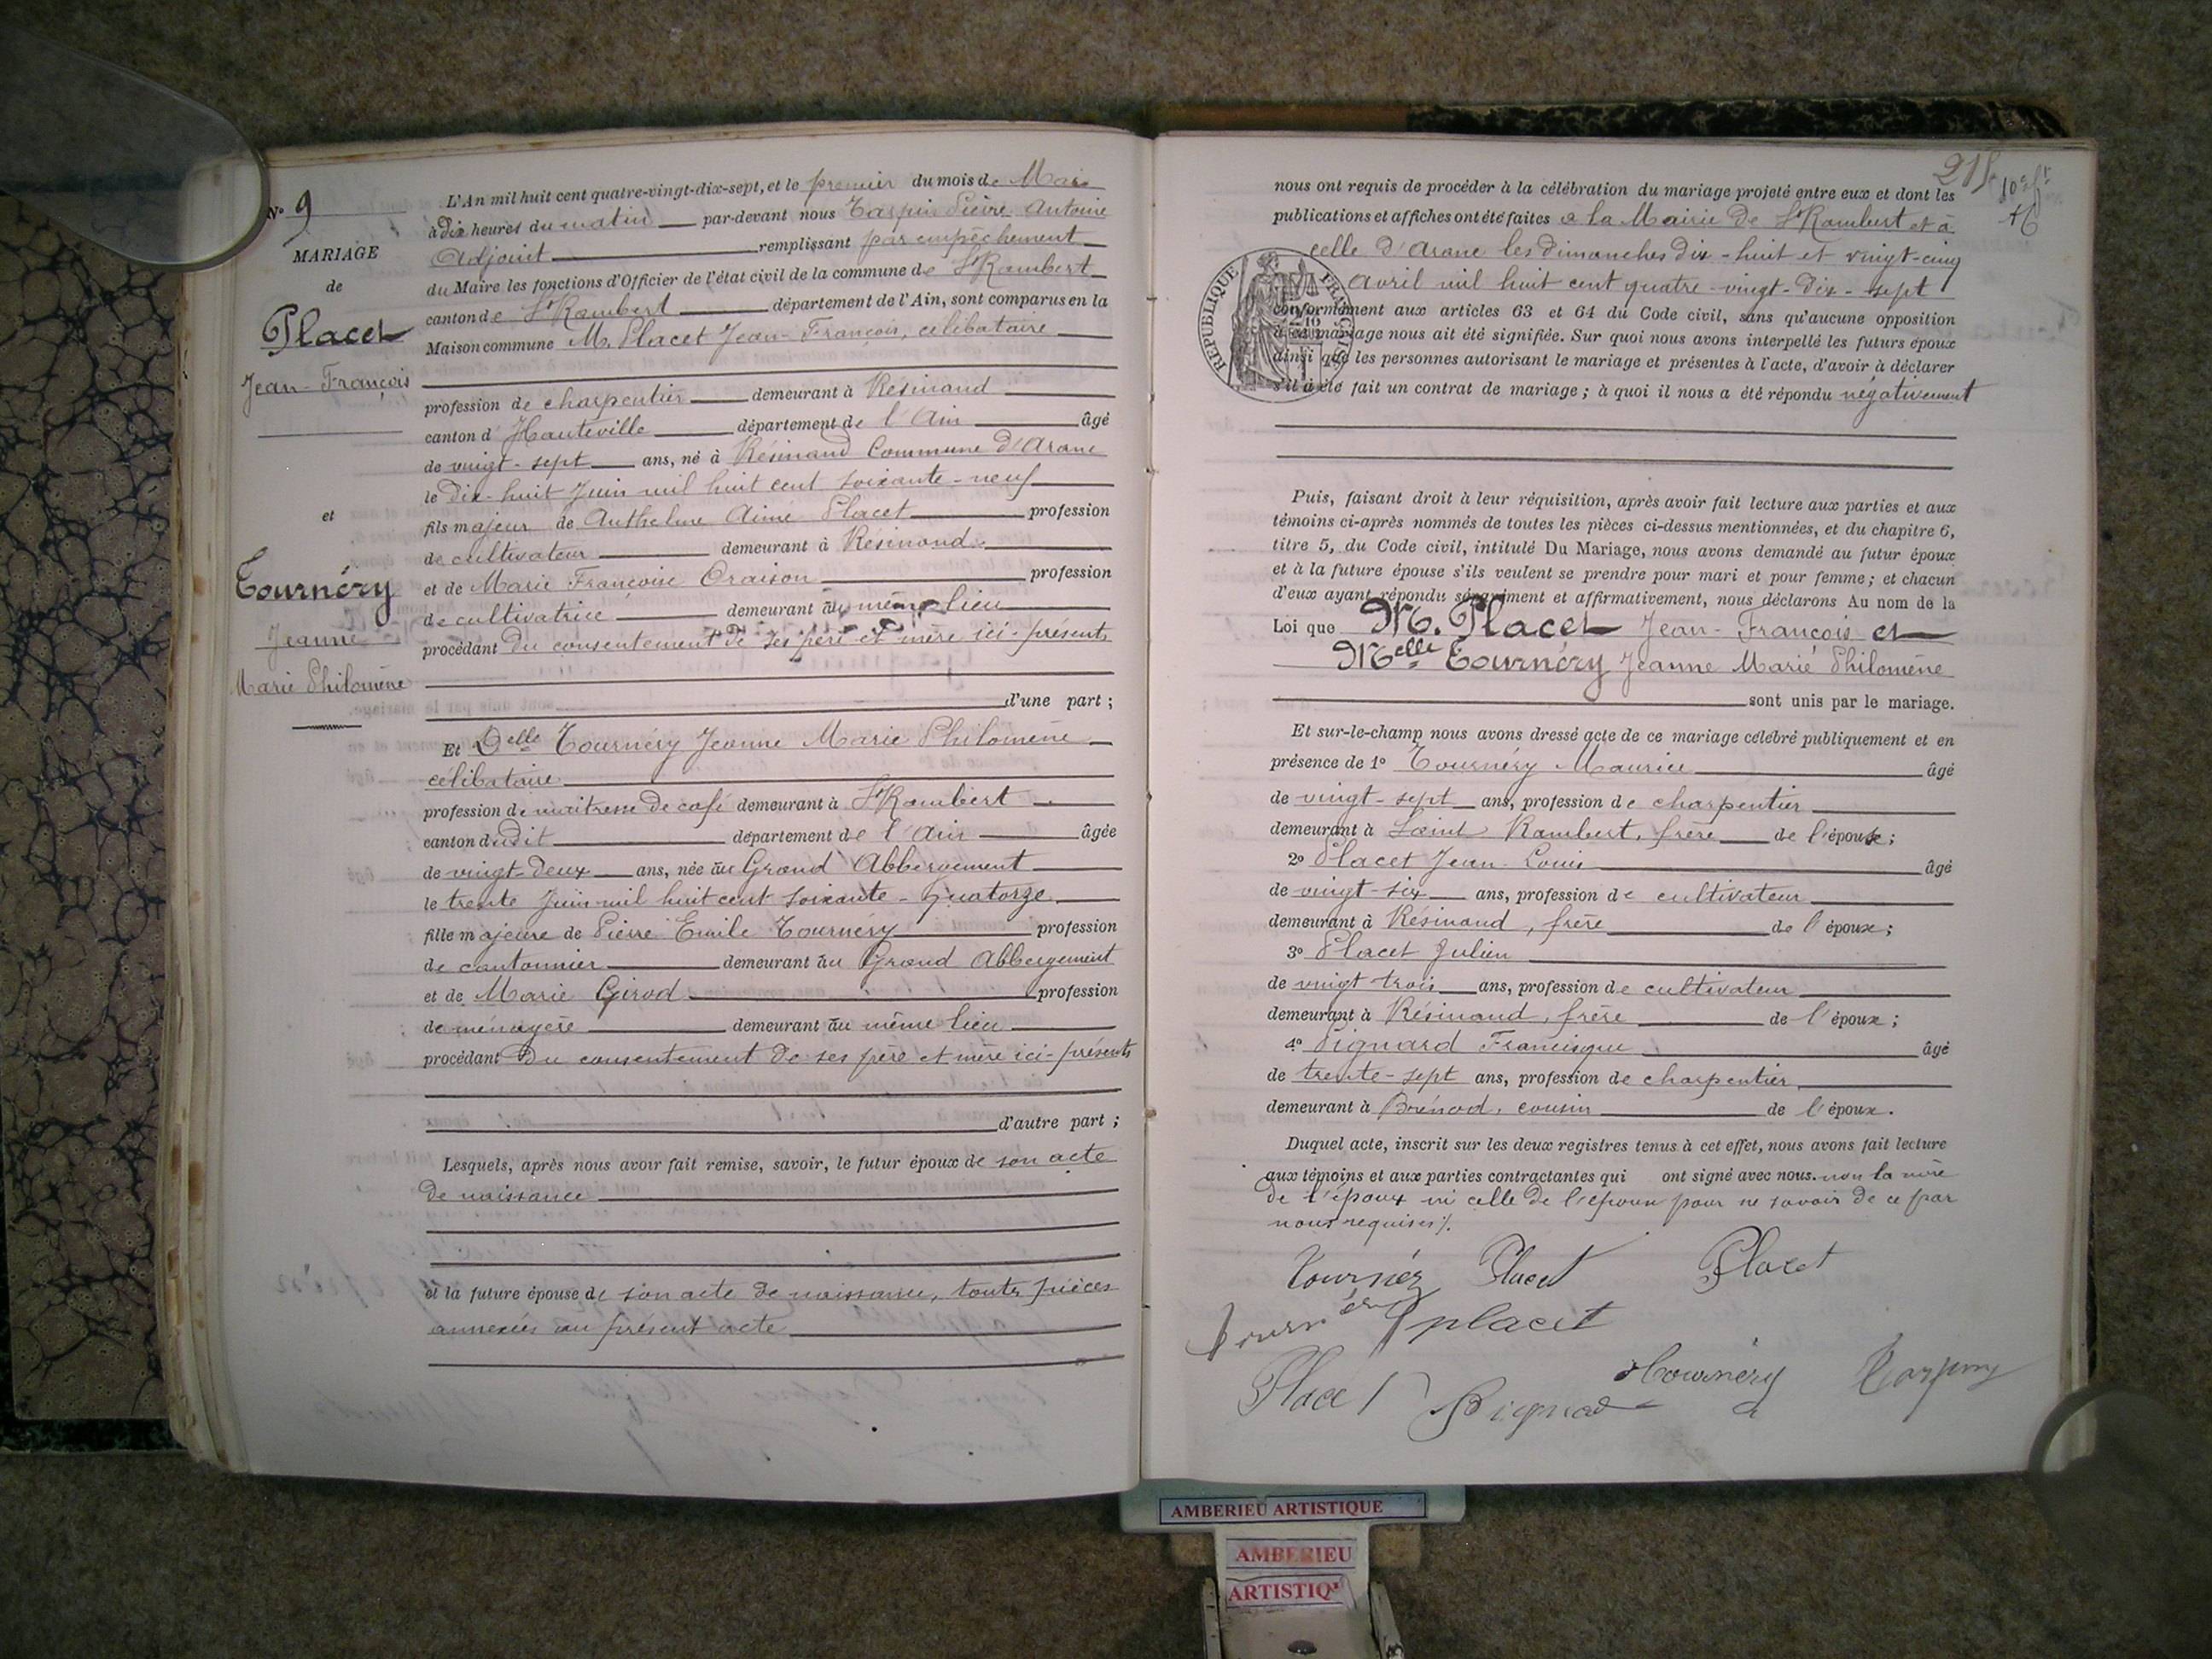 N° 9
MARIAGE
de
Placet
Jean-François
et
Tournéry
Jeanne
Marie Philomène
L'An mil huit cent quatre-vingt-dix-sept, et le premier du mois de Mai
à dix heures du matin par-devant nous Tarpin Pierre Antoine
Adjoint remplissant par empêchement
du Maire les fonctions d'Officier de l'état civil de la commune de St Rambert
canton de St Rambert département de l'Ain, sont comparus en la
Maison commune M. Placet Jean-François, célibataire
profession de charpentier demeurant à Résinand
canton d'Hauteville département de l'Ain âgé
de vingt-sept ans, né à Résinand Commune d'Arane
le dix-huit Juin mil huit cent soixante-neuf
fils majeur de Anthelme Aimé Placet profession
de cultivateur demeurant à Résinand
et de Marie Françoise Oraison profession
de cultivatrice demeurant au même lieu
procédant du consentement de ses père et mère ici-présents
d'une part ;
Et Delle Tournéry Jeanne Marie Philomène
célibataire
profession de maitresse de café demeurant à St Rambert
canton dudit département de l'Ain âgée
de vingt-deux ans, née au Grand Abbergement
le trente Juin mil huit cent soixante-quatorze
fille majeure de Pierre Emile Tournéry profession
de cantonnier demeurant au Grand Abbergement
et de Marie Girod profession
de ménagère demeurant au même lieu
procédant du consentement de ses père et mère ici-présents
d'autre part ;
Lesquels, après nous avoir fait remise, savoir, le futur époux de son acte
de naissance
et la future épouse de son acte de naissance, toutes pièces
annexées au présent acte
nous ont requis de procéder à la célébration du mariage projeté entre eux et dont les
publications et affiches ont été faites à la Mairie de St Rambert et à
celle d'Arane les dimanches dix-huit et vingt-cinq
avril mil huit cent quatre-vingt-dix-sept
conformément aux articles 63 et 64 du Code civil, sans qu'aucune opposition
à ce mariage nous ait été signifiée. Sur quoi nous avons interpellé les futurs époux
ainsi que les personnes autorisant le mariage et présentes à l'acte, d'avoir à déclarer
s'il a été fait un contrat de mariage ; à quoi il nous a été répondu négativement
RÉPUBLIQUE FRANÇAISE
Puis, faisant droit à leur réquisition, après avoir fait lecture aux parties et aux
témoins ci-après nommés de toutes les pièces ci-dessus mentionnées, et du chapitre 6,
titre 5, du Code civil, intitulé Du Mariage, nous avons demandé au futur époux
et à la future épouse s'ils veulent se prendre pour mari et pour femme ; et chacun
d'eux ayant répondu séparément et affirmativement, nous déclarons Au nom de la
Loi que M. Placet Jean-François et
Melle Tournéry Jeanne Marie Philomène
sont unis par le mariage.
Et sur-le-champ nous avons dressé acte de ce mariage célébré publiquement et en
présence de 1° Tournéry Maurice âgé
de vingt-sept ans, profession de charpentier
demeurant à Saint Rambert, frère de l'épouse ;
2° Placet Jean-Louis âgé
de vingt-six ans, profession de cultivateur
demeurant à Résinand, frère de l'époux ;
3° Placet Julien
de vingt trois ans, profession de cultivateur
demeurant à Résinand, frère de l'époux ;
4° Pignard Francisque âgé
de trente-sept ans, profession de charpentier
demeurant à Brénod, cousin de l'époux.
Duquel acte, inscrit sur les deux registres tenus à cet effet, nous avons fait lecture
aux témoins et aux parties contractantes qui ont signé avec nous. non la mère
de l'époux ni celle de l'épouse pour ne savoir de ce par
nous requises
Placet Placet
placet
Placet Pignard Tournéry Tarpin
AMBERIEU ARTISTIQUE
AMBERIEU
ARTISTIQ